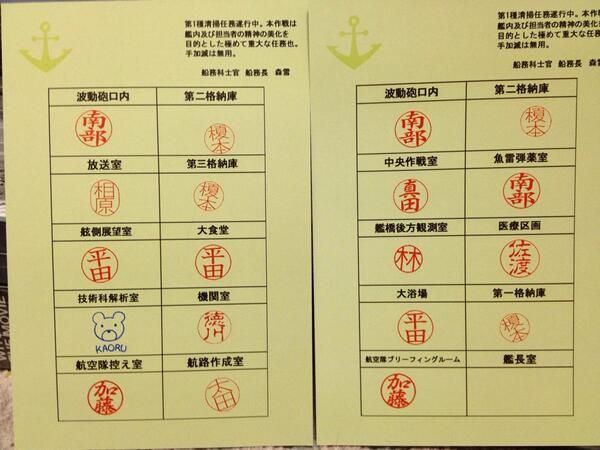 第1種清掃任務遂行中。本作戦は
艦内及び担当者の精神の美化を
目的とした極めて重大な任務也。
手加減は無用。
船務科士官 船務長 森雪
波動砲口内 第二格納庫
南部 榎本
放送室 第三格納庫
相原 榎本
舷側展望室 大食堂
平田 平田
技術科解析室 機関室
KAORU 徳川
航空隊控え室 航路作成室
加藤 太田
第1種清掃任務遂行中。本作戦は
艦内及び担当者の精神の美化を
目的とした極めて重大な任務也。
手加減は無用。
船務科士官 船務長 森雪
波動砲口内 第二格納庫
南部 榎本
中央作戦室 魚雷弾薬室
真田 南部
艦橋後方観測室 医療区画
林 佐渡
大浴場 第一格納庫
平田 榎本
航空隊ブリーフィングルーム 艦長室
加藤